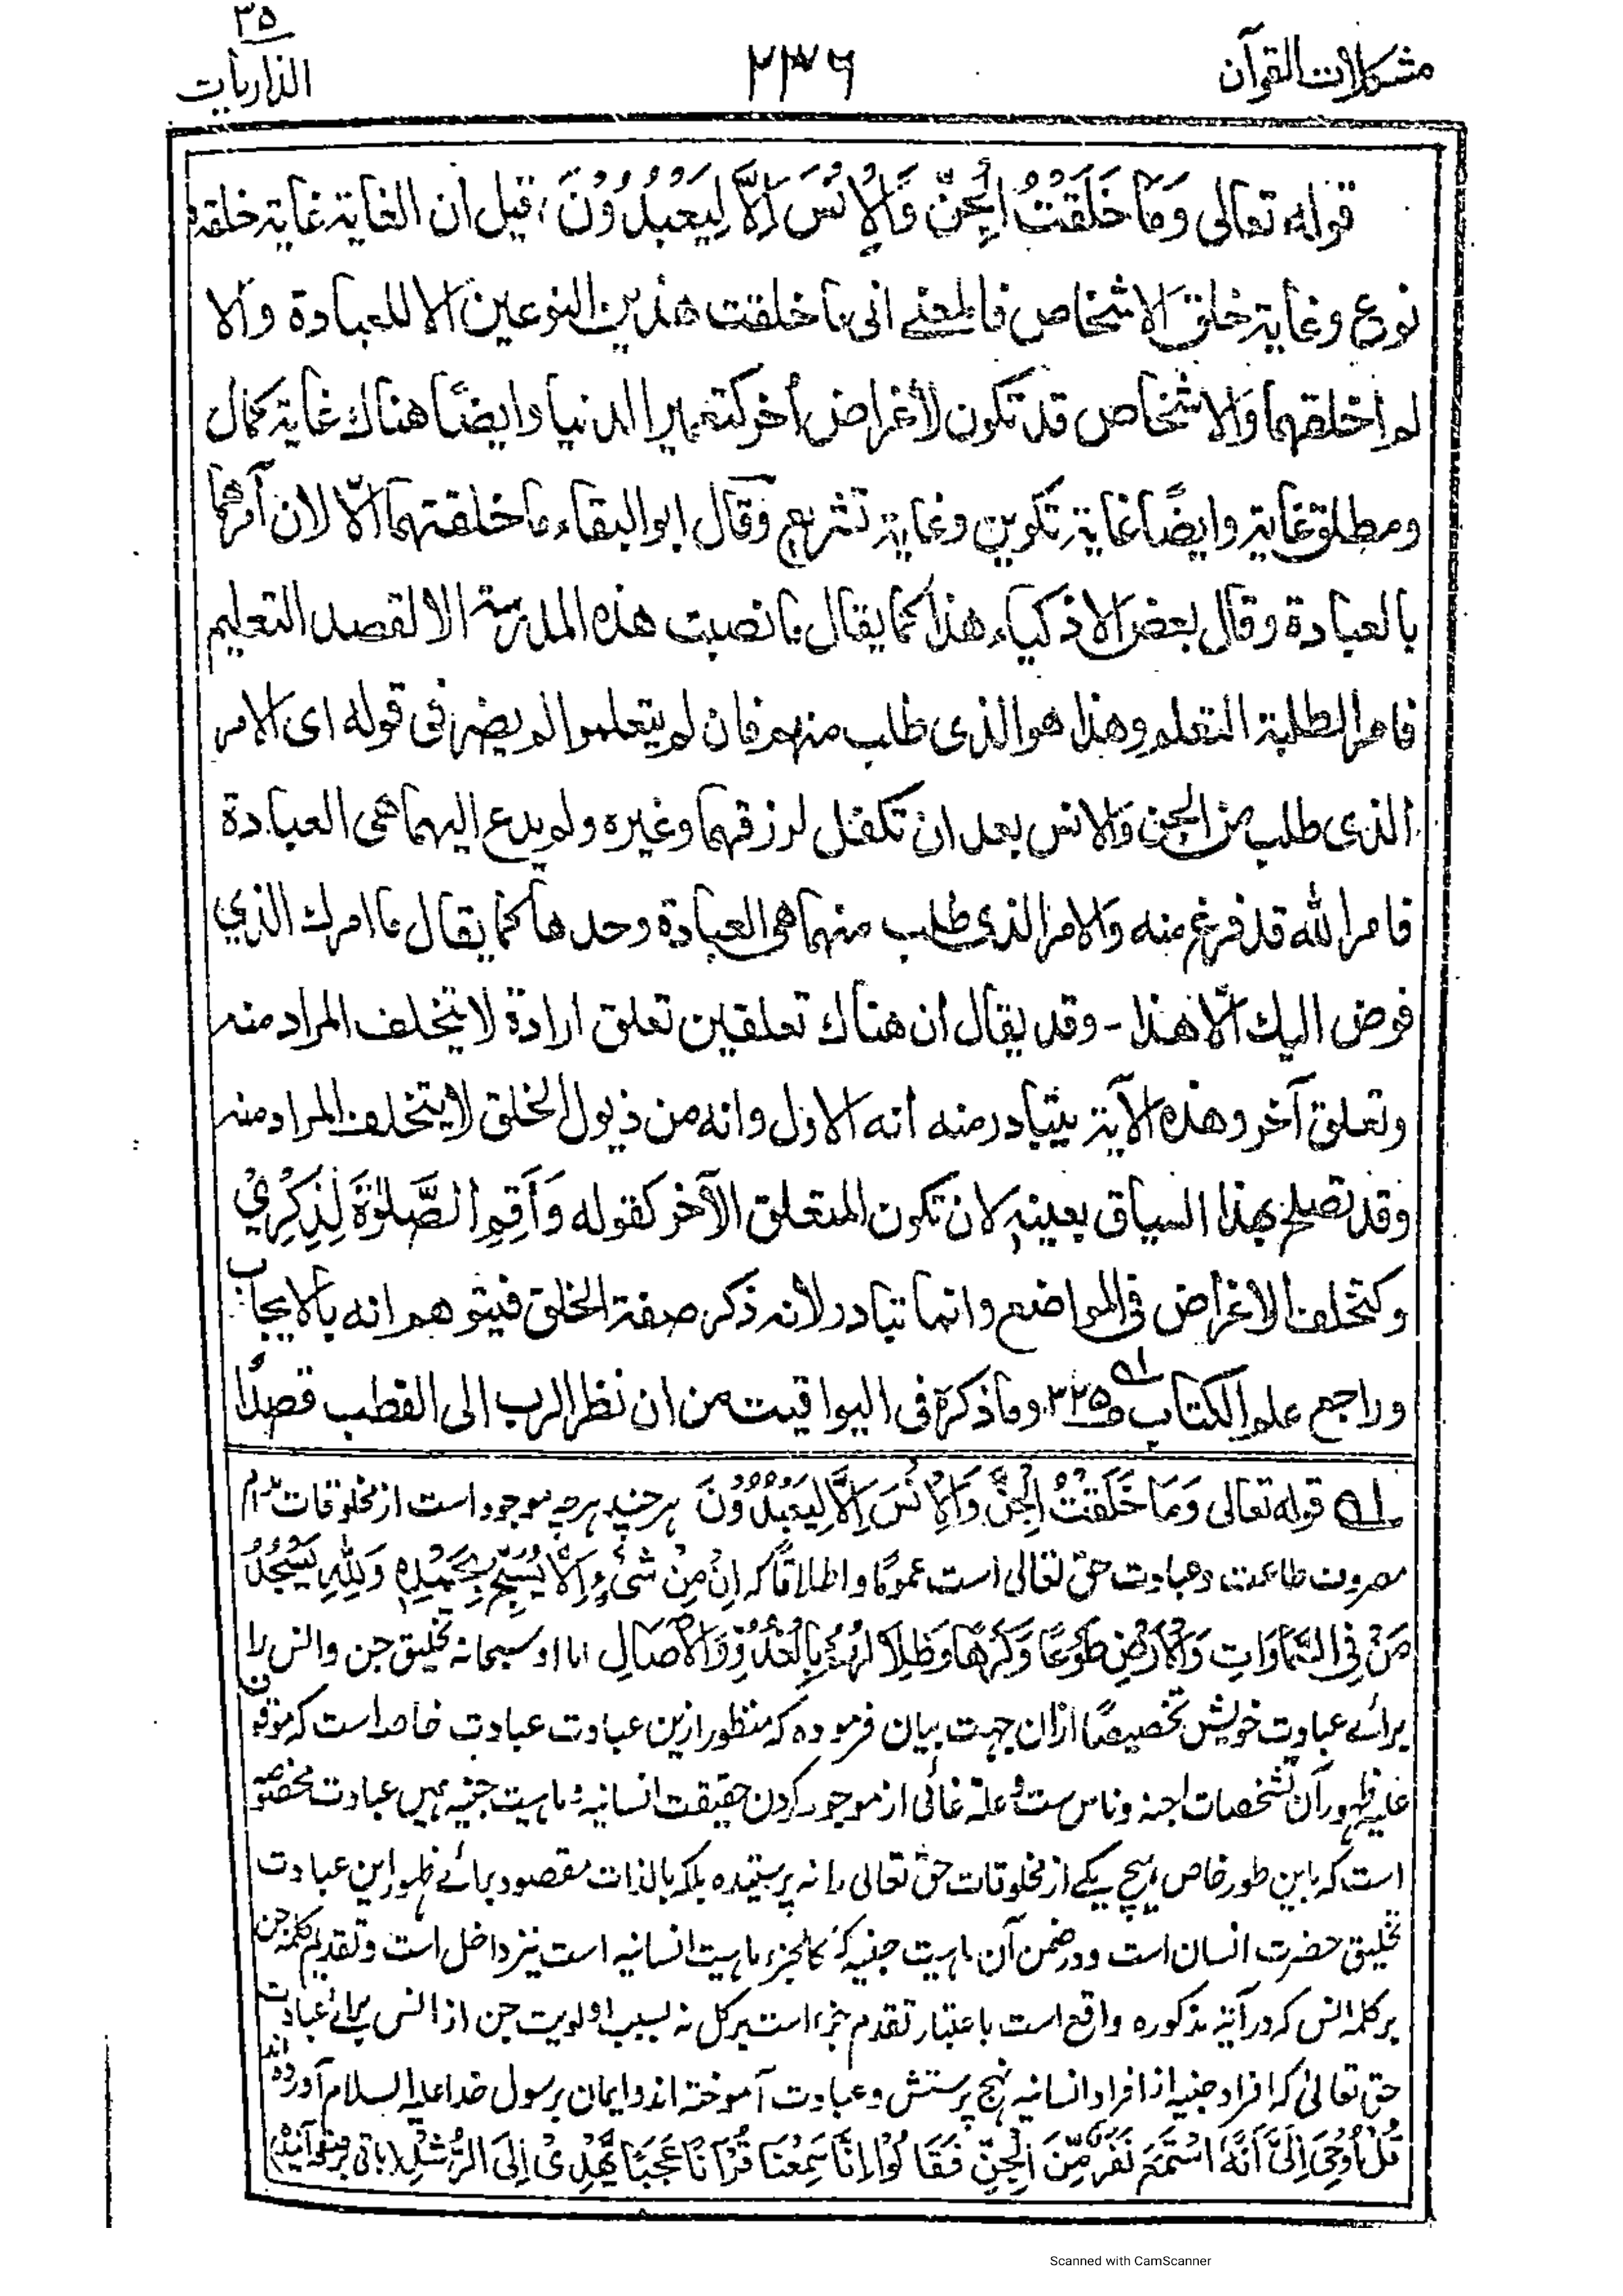 مشكلات القرآن
٢٣٦
٣٥
الذاريات
قوله تعالى وَمَا خَلَقْتُ الْجِنَّ وَالْاِنْسَ اِلَّا لِيَعْبُدُوْنَ، قيل ان الغاية غاية خلقة
نوع وغاية خلق الاشخاص فالمعنے انى ما خلقت هذين النوعين الا للعبادة والا
لم اخلقهما والاشخاص قد تكون لأغراض أخر كتعمير الدنيا وايضًا هناك غاية كمال
ومطلق غاية وايضًا غاية تكوين وغاية تشريع وقال ابو البقاء ما خلقتهما الّا لان آمرهما
بالعبادة وقال بعض الاذكياء هذا كما يقال ما نصبت هذه المدرسة الا لقصد التعليم
فامر الطلبة التعلم وهذا هو الذى طلب منهم فان لم يتعلموا لم يضر فى قوله اى الامر
الذى طلب من الجن والانس بعد ان تكفل لرزقهما وغيره ولم يدع اليهما هى العبادة
فامر الله قد فرغ منه والامر الذى طلب منهما هى العبادة وحدها كما يقال ما امرك الذي
فوض اليك الّا هذا - وقد يقال ان هناك تعلقين تعلق ارادة لا يتخلف المراد منه
وتعلق آخر وهذه الآية يتبادر منه انه الاول وانه من ذيول الخلق لا يتخلف المراد منه
وقد تصلح بهذا السياق بعينه لان تكون المتعلق الآخر كقوله وَأَقِمِ الصَّلٰوةَ لِذِكْرِيْ
وكتخلف الاغراض فى المواضع وانما تبادر لانه ذكر صفة الخلق فيتوهم انه بالايجاب
وراجع علم الكتاب ص٣٢٥ ؁٩١ وما ذكره فى اليواقيت من ان نظر الرب الى القطب قصدًا و
؁٩١ قوله تعالى وَمَا خَلَقْتُ الْجِنَّ وَالْاِنْسَ اِلَّا لِيَعْبُدُوْنَ هر چند هر چه موجود است از مخلوقات
مصروف طاعت و عبادت حق تعالى است عمومًا و اطلاقًا كه اِنْ مِنْ شَىْءٍ اِلَّا يُسَبِّحُ بِحَمْدِهٖ وَلِلّٰهِ يَسْجُدُ
مَنْ فِى السَّمَاوَاتِ وَالْاَرْضِ طَوْعًا وَّكَرْهًا وَّظِلَالُهُمْ بِالْغُدُوِّ وَالْاٰصَالِ اما او سبحانه تخليق جن و انس را
برائے عبادت خويش تخصيصًا ازان جهت بيان فرموده كه منظور ازين عبادت عبادت خاصه است كه موقوف
عليه ظهور آن تشخصات اجنه و ناس ست و علة غائى از موجود كردن حقيقت انسانيه و ماهيت جنيه همين عبادت مخصوصه
است كه باين طور خاص هيچ يكے از مخلوقات حق تعالى را نه پرستيده بلكه بالذات مقصود برائے ظهور اين عبادت
تخليق حضرت انسان است و در ضمن آن ماهيت جنيه كه كالجزء ماهيت انسانيه است نيز داخل است و تقديم كلمه جن
بر كلمه انس كه در آية مذكوره واقع است باعتبار تقدم جزء است بر كل نه بسبب اولويت جن از انس برائے عبادت
حق تعالى كه افراد جنيه از افراد انسانيه نهج پرستش و عبادت آموخته اند و ايمان برسول خدا عليه السلام آورده اند
قُلْ اُوْحِىَ اِلَىَّ اَنَّهُ اسْتَمَعَ نَفَرٌ مِّنَ الْجِنِّ فَقَالُوْا اِنَّا سَمِعْنَا قُرْاٰنًا عَجَبًا يَّهْدِىْ اِلَى الرُّشْدِ (باقى بر صفحه آينده)
Scanned with CamScanner